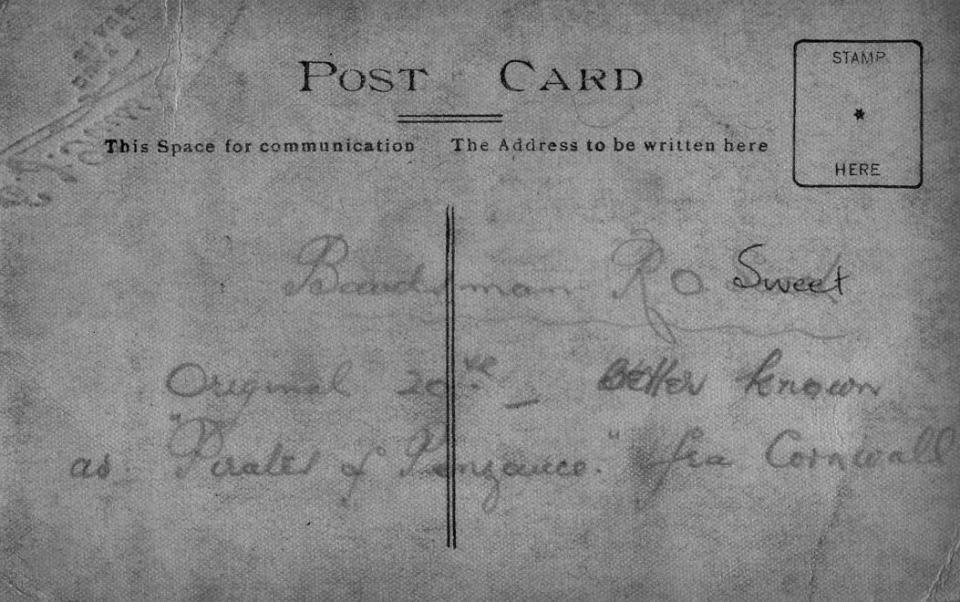 POST CARD
STAMP
★
HERE
This Space for communication
The Address to be written here
Bandsman R O. Sweet
Original 20 _ better known
as "Pirates of Penzance." Cornwall